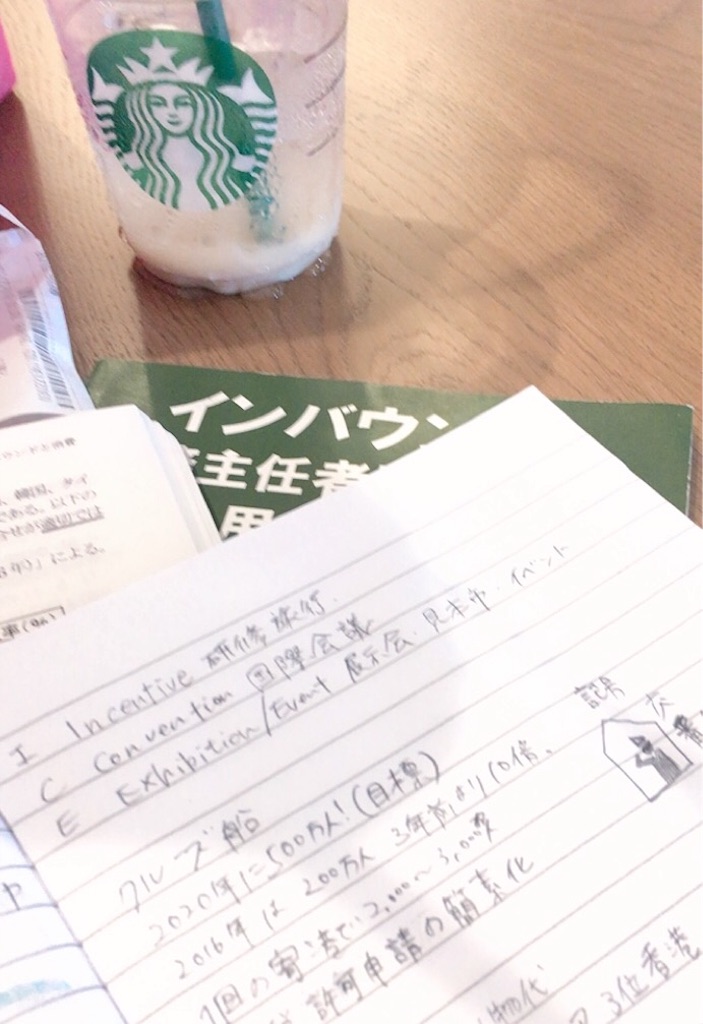 インバウン
主任者
用
ウンドと消費
、韓国、タイ
である。以下の
合せが適切では
年)」による。
I Incentive 研修旅行
C Convention 国際会議
E Exhibition/Event 展示会・見本市・イベント
クルーズ船
2020年に500万人!(目標)
2016年は200万人 3年前より10倍。
1回の寄港で2,000〜3,000
許可申請の簡素化
3位香港